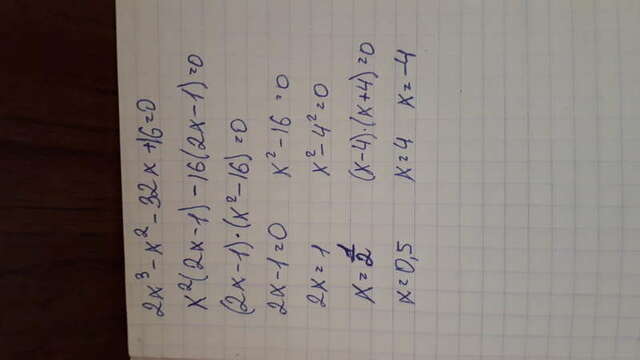 2x³-x²-32x+16=0
x²(2x-1)-16(2x-1)=0
(2x-1)·(x²-16)=0
2x-1=0 x²-16=0
2x=1 x²-4²=0
x=1/2 (x-4)·(x+4)=0
x=0,5 x=4 x=-4